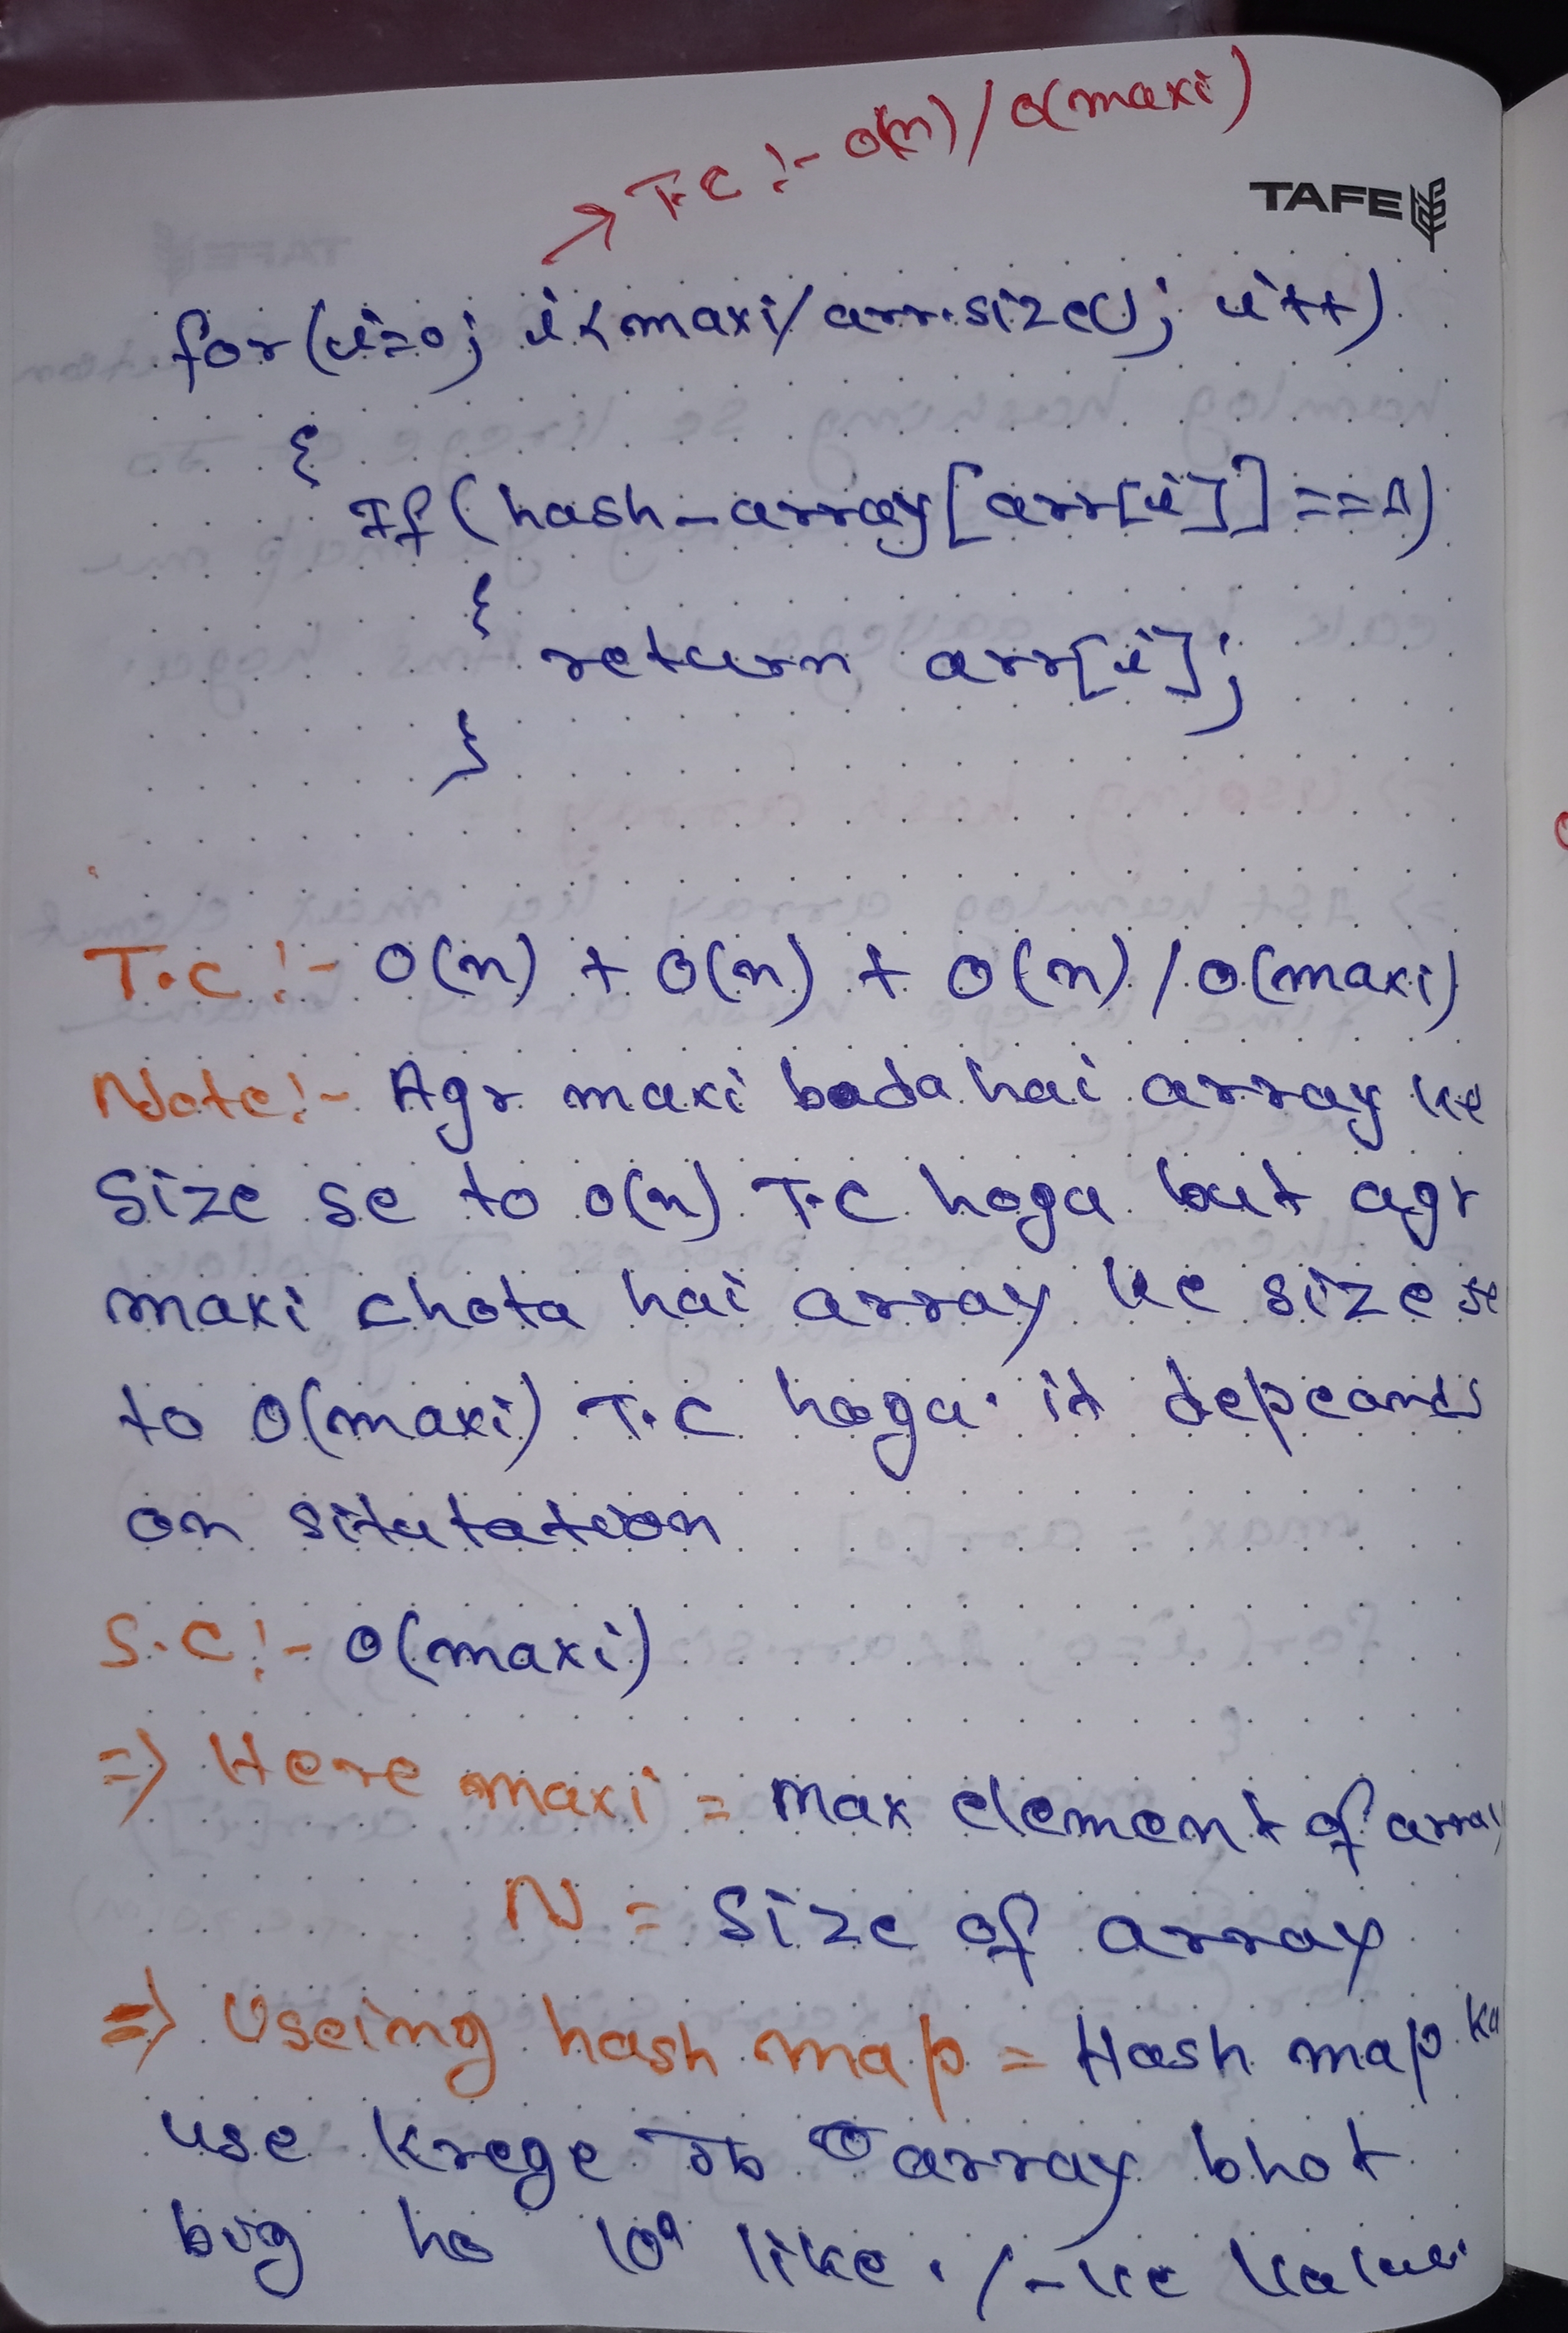 → T.C :- O(n) / O(maxi)
TAFE
for(i=0; i<maxi/arr.size(); i++)
{
If(hash_array[arr[i]]==1)
{
return arr[i];
}
T.C :- O(n) + O(n) + O(n) / O(maxi)
Note:- Agr maxi bada hai array ke
Size se to O(n) T.C hoga but agr
maxi chota hai array ke size se
to O(maxi) T.C hoga. it depeands
on situtation
S.C :- O(maxi)
=> Here maxi = max element of array
N = Size of array
=> Useing hash map = Hash map ka
use krege Jb array bhot
big ho 10⁹ like . / -ve value